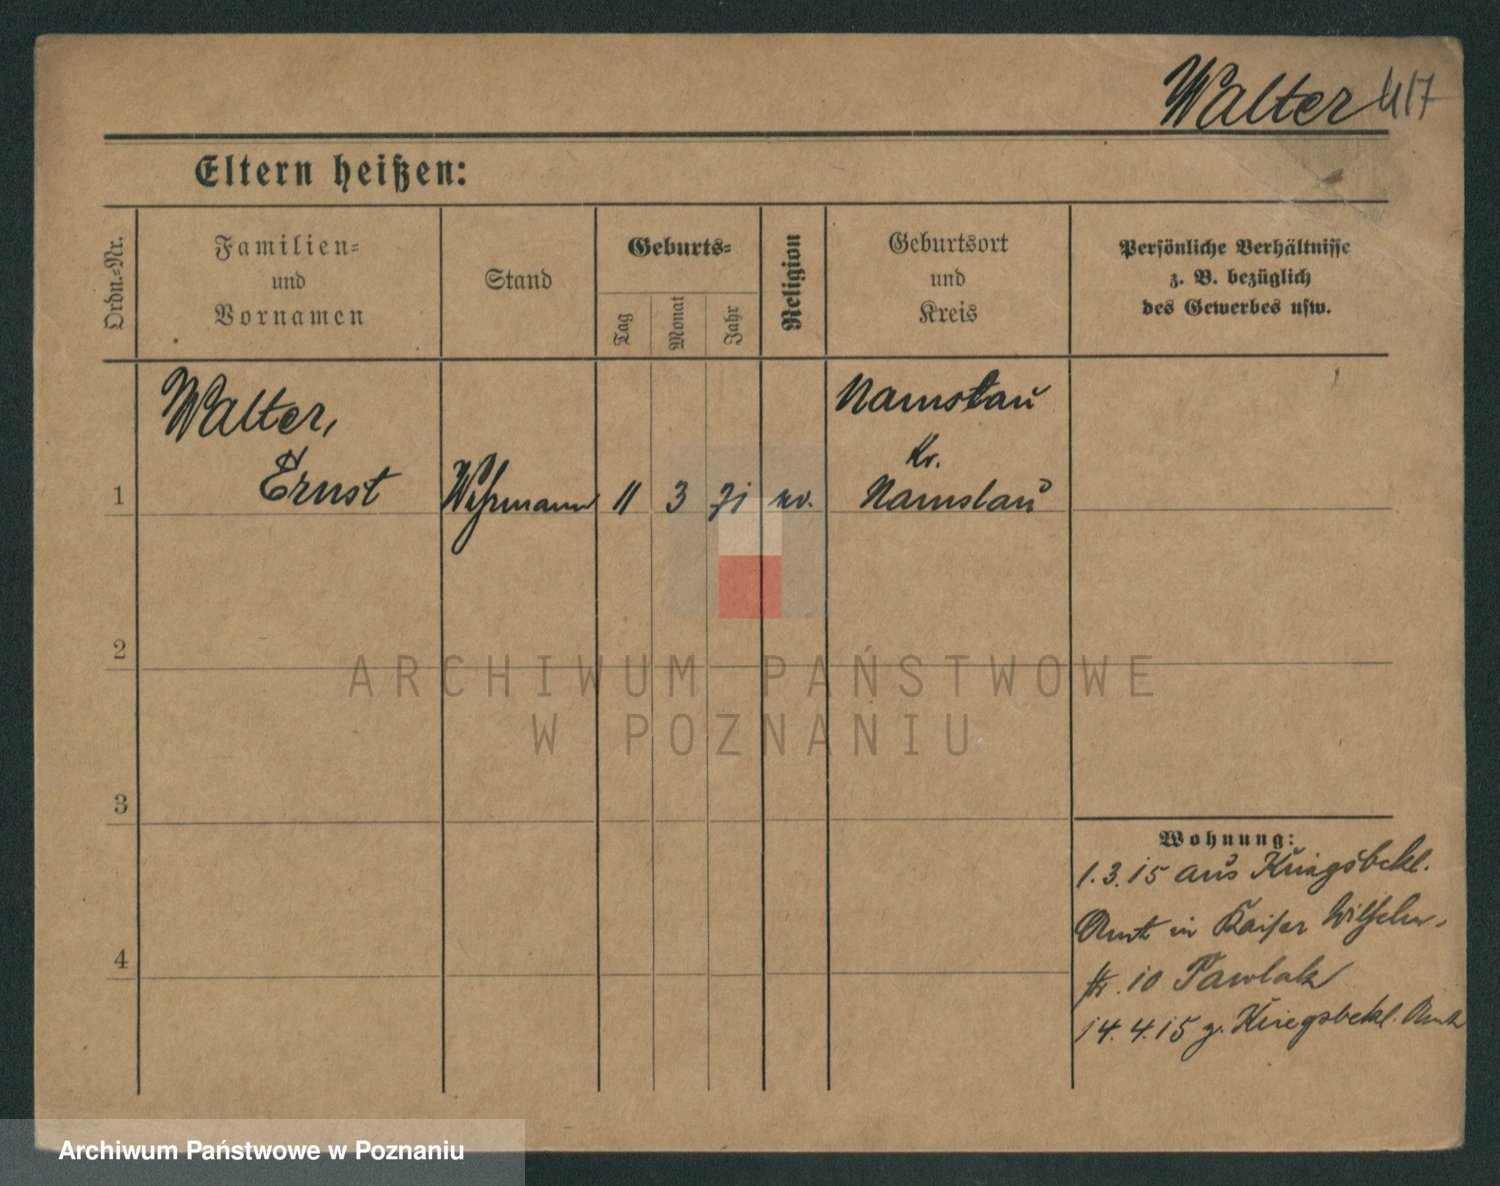 Walter 417
Eltern heißen:
Ordn.-Nr.
Familien-
und
Vornamen
Stand
Geburts-
Tag
Monat
Jahr
Religion
Geburtsort
und
Kreis
Persönliche Verhältnisse
z. B. bezüglich
des Gewerbes usw.
Walter,
Ernst
1
Wehrmann
11
3
71
ev.
Namslau
Kr.
Namslau
2
3
4
Wohnung:
1.3.15 aus Kriegsbekl.
Amt in Kaiser Wilhelm-
str. 10 Pawlak
14.4.15 z. Kriegsbekl. Amt
ARCHIWUM PAŃSTWOWE
W POZNANIU
Archiwum Państwowe w Poznaniu